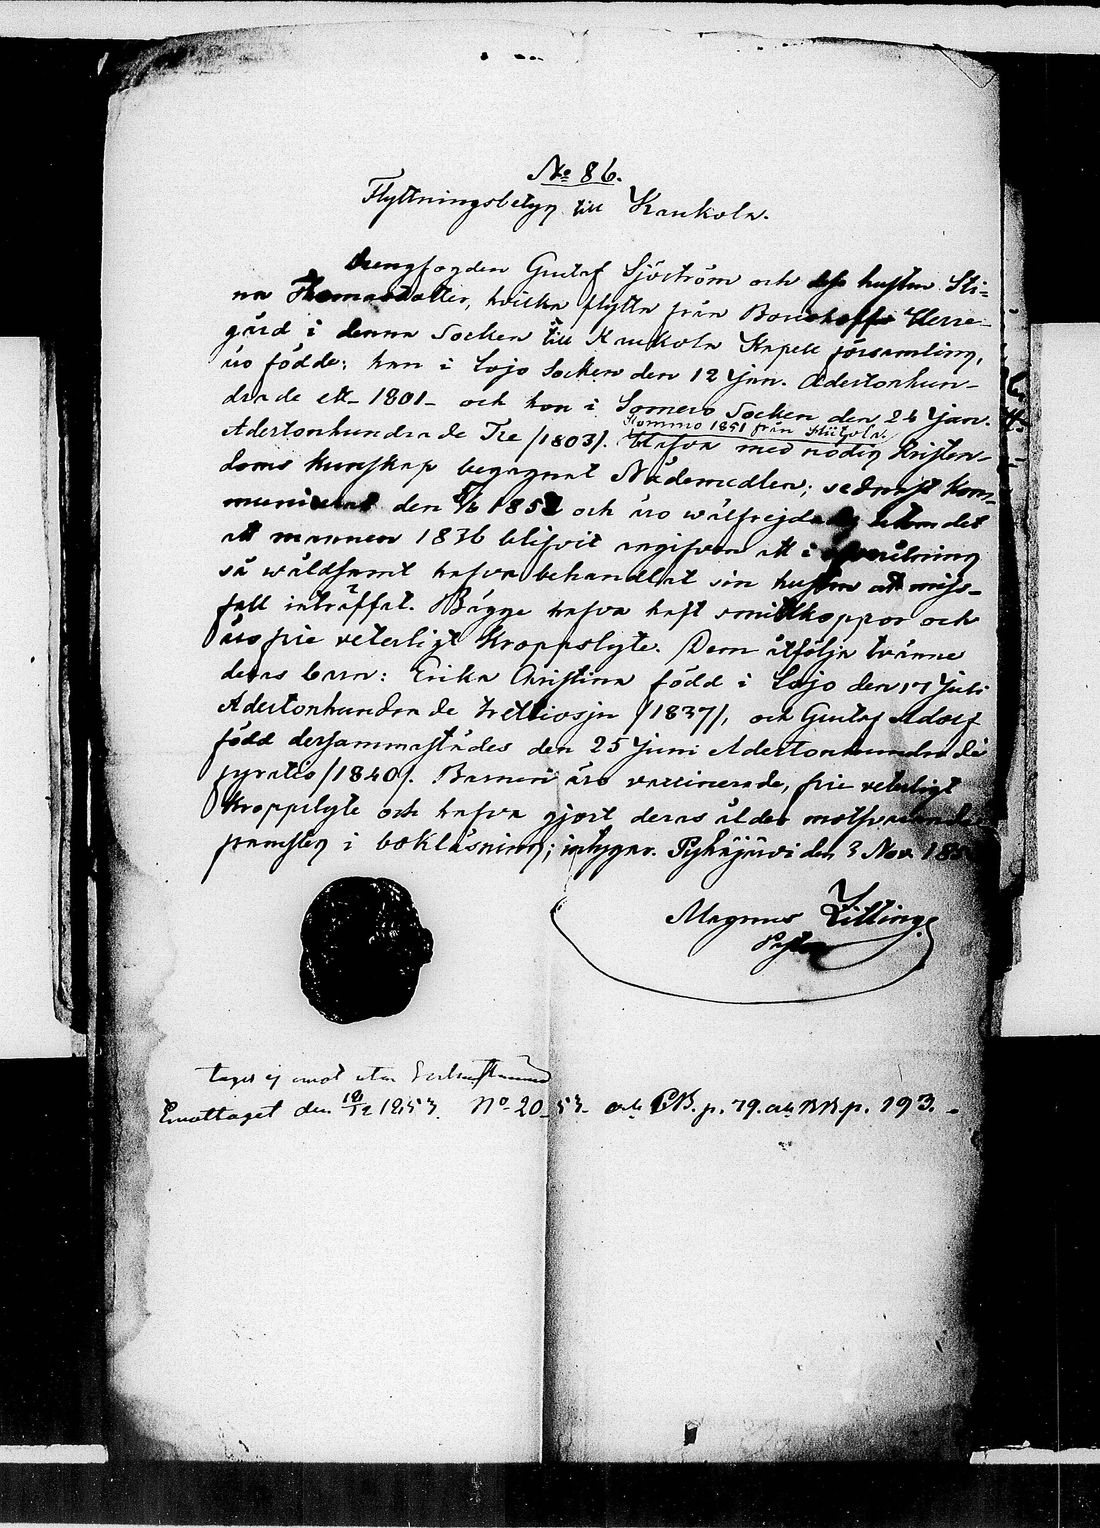 No 86.
Flyttningsbetyg till Kaukola.
Drengfogden Gustaf Sjöström och dess hustru Sti-
na Thomasdotter, hvilka flytta från Herre-
gård i denna Socken till Kaukola Kapell församling,
äro födde: han i Lojo Socken den 12 Jan. Adertonhun-
drade ett - 1801 - och hon i Somero Socken den 24 Jan.
Komme 1851 från Hiitola.
Adertonhundrade Tre /1803/. Hafva med nödig Kristen-
doms kunskap begagnat Nådemedlen; sednast Kom-
municerat den 185 och äro wälfrejdade, utom det
att mannen 1836 blifvit angifven att i
så wåldsamt hafva behandlat sin hustru att miss-
fall inträffat. Bägge hafva haft smittkoppor och
äro frie veterligt Kroppslyte. Dem åtfölja tvänne
deras barn: Erika Christina född i Lojo den 17 Juli
Adertonhundrade trettiosju /1837/, och Gustaf Adolf
född dersammastädes den 25 Juni Adertonhundrade
fyratio /1840/. Barnen äro vaccinerade, frie veterligt
Kroppslyte och hafva gjort deras ålder motsvarande
framsteg i bokläsning; intygar. Pyhäjärvi den 3 Nov. 185
Magnus
Pastor
tages ej emot utan
Emottaget den 18/12 1853. No 20 53. och CB. p. 79. och RB p. 193.